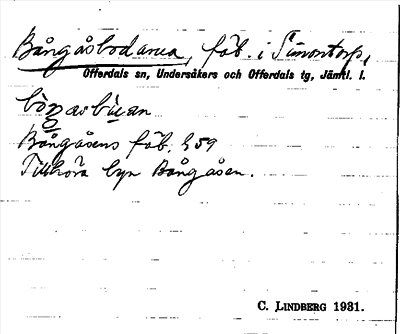 Bångåsbodarna, fäb. i Timontorp,
Offerdals sn, Undersåkers och Offerdals tg, Jämtl. l.
Bångåsens fäb. h 59
Tillhöra byn Bångåsen.
C. LINDBERG 1931.